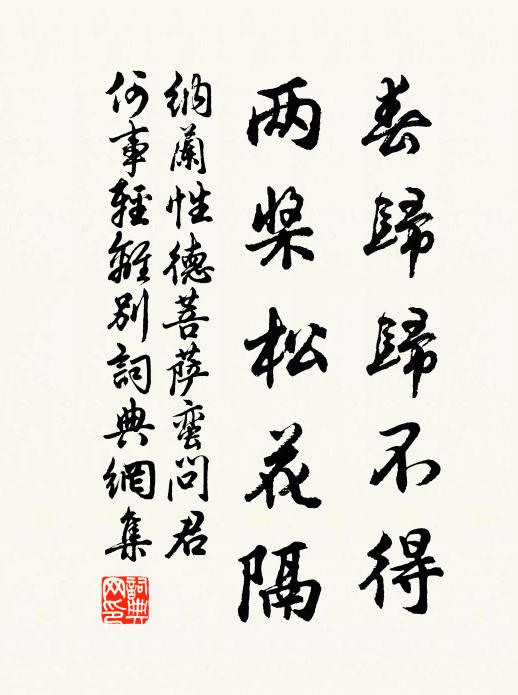 春歸歸不得
两槳松花隔
納蘭性德菩萨蛮問君
何事輕離別詞典網集
詞典
网印